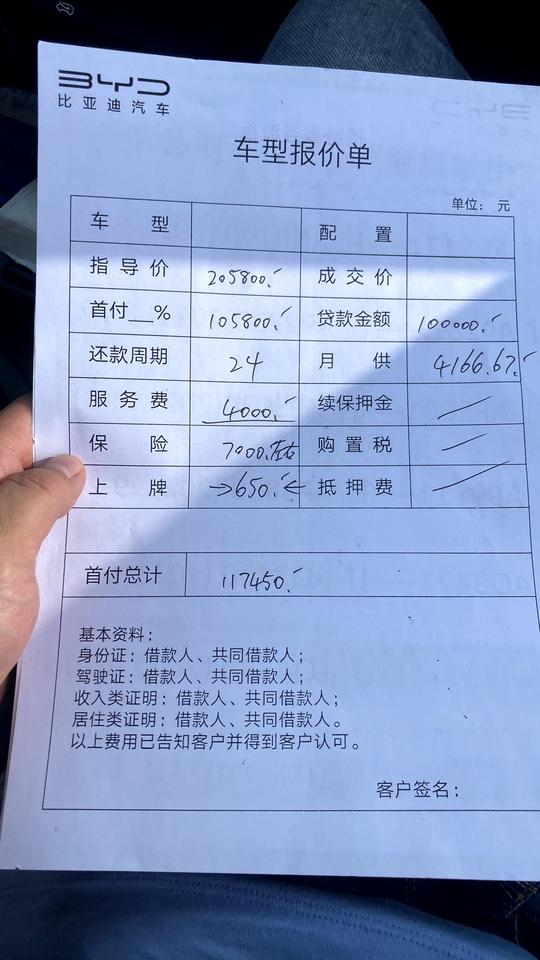 BYD
比亚迪汽车
车型报价单
单位：元
车型 配置
指导价 205800.- 成交价
首付__% 105800.- 贷款金额 100000.-
还款周期 24 月供 4166.67.-
服务费 4000.- 续保押金 /
保险 7000.左右 购置税 /
上牌 →650.-← 抵押费 /
首付总计 117450.-
基本资料：
身份证：借款人、共同借款人；
驾驶证：借款人、共同借款人；
收入类证明：借款人、共同借款人；
居住类证明：借款人、共同借款人。
以上费用已告知客户并得到客户认可。
客户签名：